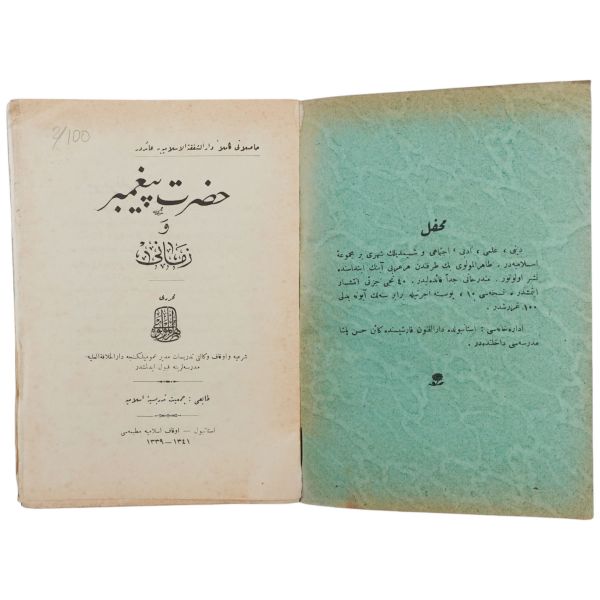 2/100
حاصلاتی كاملاً دارالشفقة الاسلامیه عائددر
حضرت پیغمبر
و
زمانی
محرری
شرعیه و اوقاف وكالتی تدریسات مدیر عمومیلكنجه دارالخلافة العلیه
مدرسه لرینه قبول ایدلمشدر
طابعی : جمعیت تدریسیۀ اسلامیه
استانبول — اوقاف اسلامیه مطبعه سی
١٣٤١ — ١٣٣٩
محفل
دینی ، علمی ، ادبی ، اجتماعی و شهری بر مجموعۀ
اسلامیه در . طاهرالمولوی بك طرفندن هر عربی آینك ابتداسنده
نشر اولونور . مندرجاتی جداً فائده لیدر . ٤٠ نجی جزئی انتشار
ایتمشدر . نسخه سی ١٠ ، پوسته اجرتیله برابر سنه لك آبونه بدلی
١٠٠ غروشدر .
اداره خانه سی : استانبولده دارالفنون قارشیسنده كائن حسن پاشا
مدرسه سی داخلنده در .